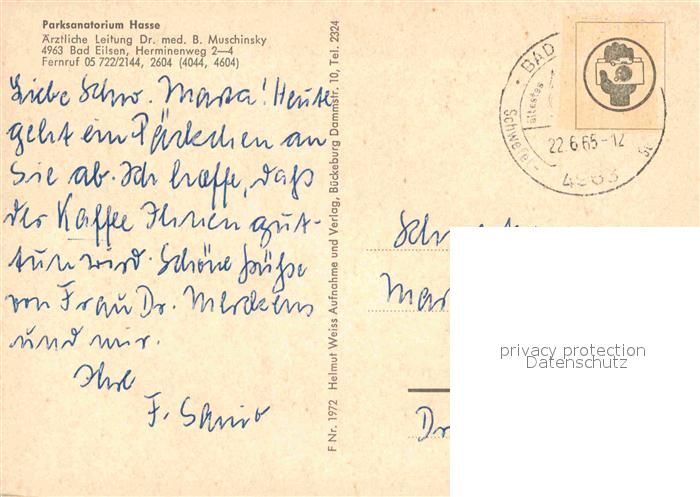 Parksanatorium Hasse
Ärztliche Leitung Dr. med. B. Muschinsky
4963 Bad Eilsen, Herminenweg 2—4
Fernruf 05 722/2144, 2604 (4044, 4604)
Liebe Schw. Marta! Heute
geht ein Päckchen an
Sie ab. Ich hoffe, daß
der Kaffee Ihnen gut-
tun wird. Schöne Grüße
von Frau Dr. Merckens
und mir.
Ihre
F.
F Nr. 1972 Helmut Weiss Aufnahme und Verlag, Bückeburg Dammstr. 10, Tel. 2324
BAD
ältestes
Schwefel-
22.6.65-12
4963
privacy protection
Datenschutz
Dr